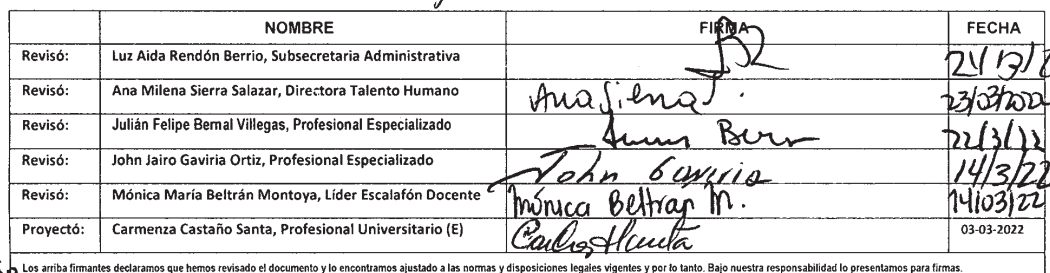 NOMBRE FIRMA FECHA
Revisó: Luz Aida Rendón Berrio, Subsecretaria Administrativa
Revisó: Ana Milena Sierra Salazar, Directora Talento Humano 23/03/2022
Revisó: Julián Felipe Bernal Villegas, Profesional Especializado 22/3/22
Revisó: John Jairo Gaviria Ortiz, Profesional Especializado John Gaviria 14/3/22
Revisó: Mónica María Beltrán Montoya, Líder Escalafón Docente Mónica Beltran M. 14/03/22
Proyectó: Carmenza Castaño Santa, Profesional Universitario (E) 03-03-2022
Los arriba firmantes declaramos que hemos revisado el documento y lo encontramos ajustado a las normas y disposiciones legales vigentes y por lo tanto. Bajo nuestra responsabilidad lo presentamos para firmas.